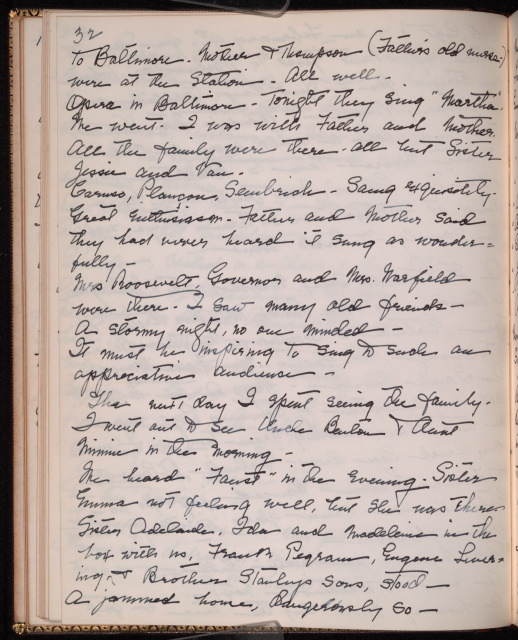 32
to Baltimore. Mother & Thompson (Father's old nurse)
were at the Station. All well.
Opera in Baltimore - Tonight they sing "Martha"
We went. I was with Father and Mother.
All the family were there. All but Sister
Jessie and Van.
Caruso, Plançon, Sembrich - Sang exquisitely.
Great enthusiasm. Father and Mother said
they had never heard it sung as wonder=
fully -
Mrs Roosevelt, Governor and Mrs. Warfield
were there. I saw many old friends -
A stormy night, no one minded -
It must be inspiring to sing to such an
appreciative audience -
The next day I spent seeing the family.
I went out to see Uncle Benton & Aunt
Minnie in the morning -
We heard "Faust" in the evening. Sister
Emma not feeling well, but she was there
Sister Adelaide, Ida and Madeleine in the
box with us, Frank Pegram, Eugene Lever=
ing, & Brother Stanleys Sons, stood -
A jammed house, Dangerously so -